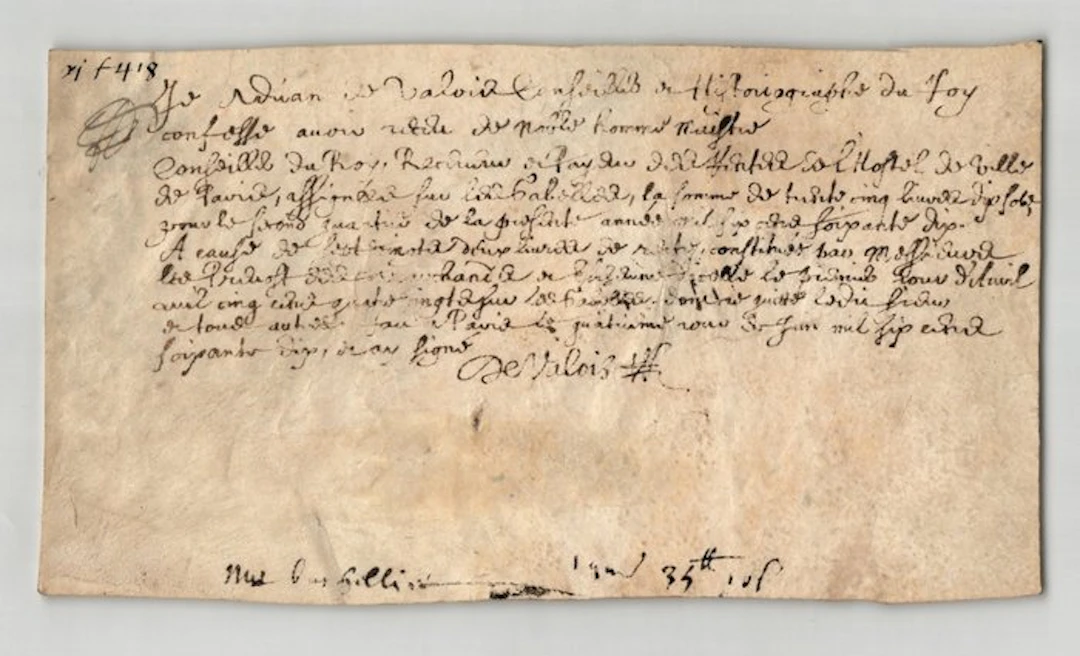 xj f 418
Je Adrian de Valois Conseiller et Historiographe du Roy
confesse avoir receu de Noble homme Maistre
Conseiller du Roy, Receveur et Payeur des Rentes de l'Hostel de Ville
de Paris, assignées sur les Gabelles, la somme de trente cinq livres dix solz
pour le second quartier de la presente année mil six cens soixante dix.
A cause de livres de rente, constituée par Messieurs
les Prevost des marchands et Eschevins d'icelle le premier Jour d'Avril
mil cinq cens quatre vingts sur les Gabelles. dont je quitte ledit sieur
et tous autres. fait a Paris le quatrieme jour de Juin mil six cens
soixante dix, et ay signé
De Valois
35 tt 10 s